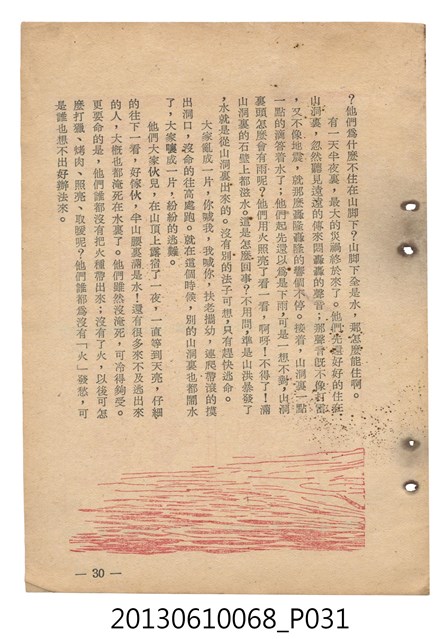 ？他們爲什麼不住在山脚下？山脚下全是水，那怎麼能住啊。
有一天半夜裏，最大的災禍終於來了。他們先還好好的住在
山洞裏，忽然聽見遠遠的傳來悶轟轟的聲音；那聲音旣不像打雷
，又不像地震，就那麼轟隆轟隆的響個不停。接着，山洞裏一點
一點的滴答着水了；他們起先還以爲是下雨，可是一想不對，山洞
裏頭怎麼會有雨呢？他們用火照亮了看一看，啊呀！不得了！滿
山洞裏的石壁上都滋水。這是怎麼回事？不用問，準是山洪暴發了
，水就是從山洞裏出來的。沒有別的法子可想，只有趕快逃命。
大家亂成一片，你喊我，我喊你，扶老攜幼，連爬帶滾的摸
出洞口，沒命的往高處跑。就在這個時候，別的山洞裏也都鬧水
了，大家嚷成一片，紛紛的逃難。
他們大家伙兒，在山頂上露宿了一夜，一直等到天亮，仔細
的往下一看，好傢伙，半山腰裏滿是水！還有很多來不及逃出來
的人，大概也都淹死在水裏了。他們雖然沒淹死，可冷得夠受。
更要命的是，他們誰都沒有把火種帶出來；沒有了火，以後可怎
麼打獵、烤肉、照亮、取暖呢？他們誰都爲沒有「火」發愁，可
是誰也想不出好辦法來。
— 30 —
20130610068_P031